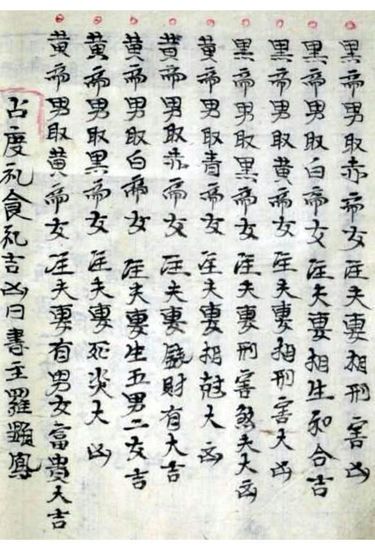 黑帝男取赤帝女注夫妻相刑害凶
黑帝男取白帝女注夫妻相生和合吉
黑帝男取黄帝女注夫妻相刑害大凶
黑帝男取黑帝女注夫妻刑害煞夫大凶
黄帝男取青帝女注夫妻相尅大凶
黄帝男取赤帝女注夫妻發財有大吉
黄帝男取白帝女注夫妻生五男二女吉
黄帝男取黑帝女注夫妻死災大凶
黄帝男取黄帝女注夫妻有男女富貴大吉
占度礼食礼吉凶日書主羅鳳